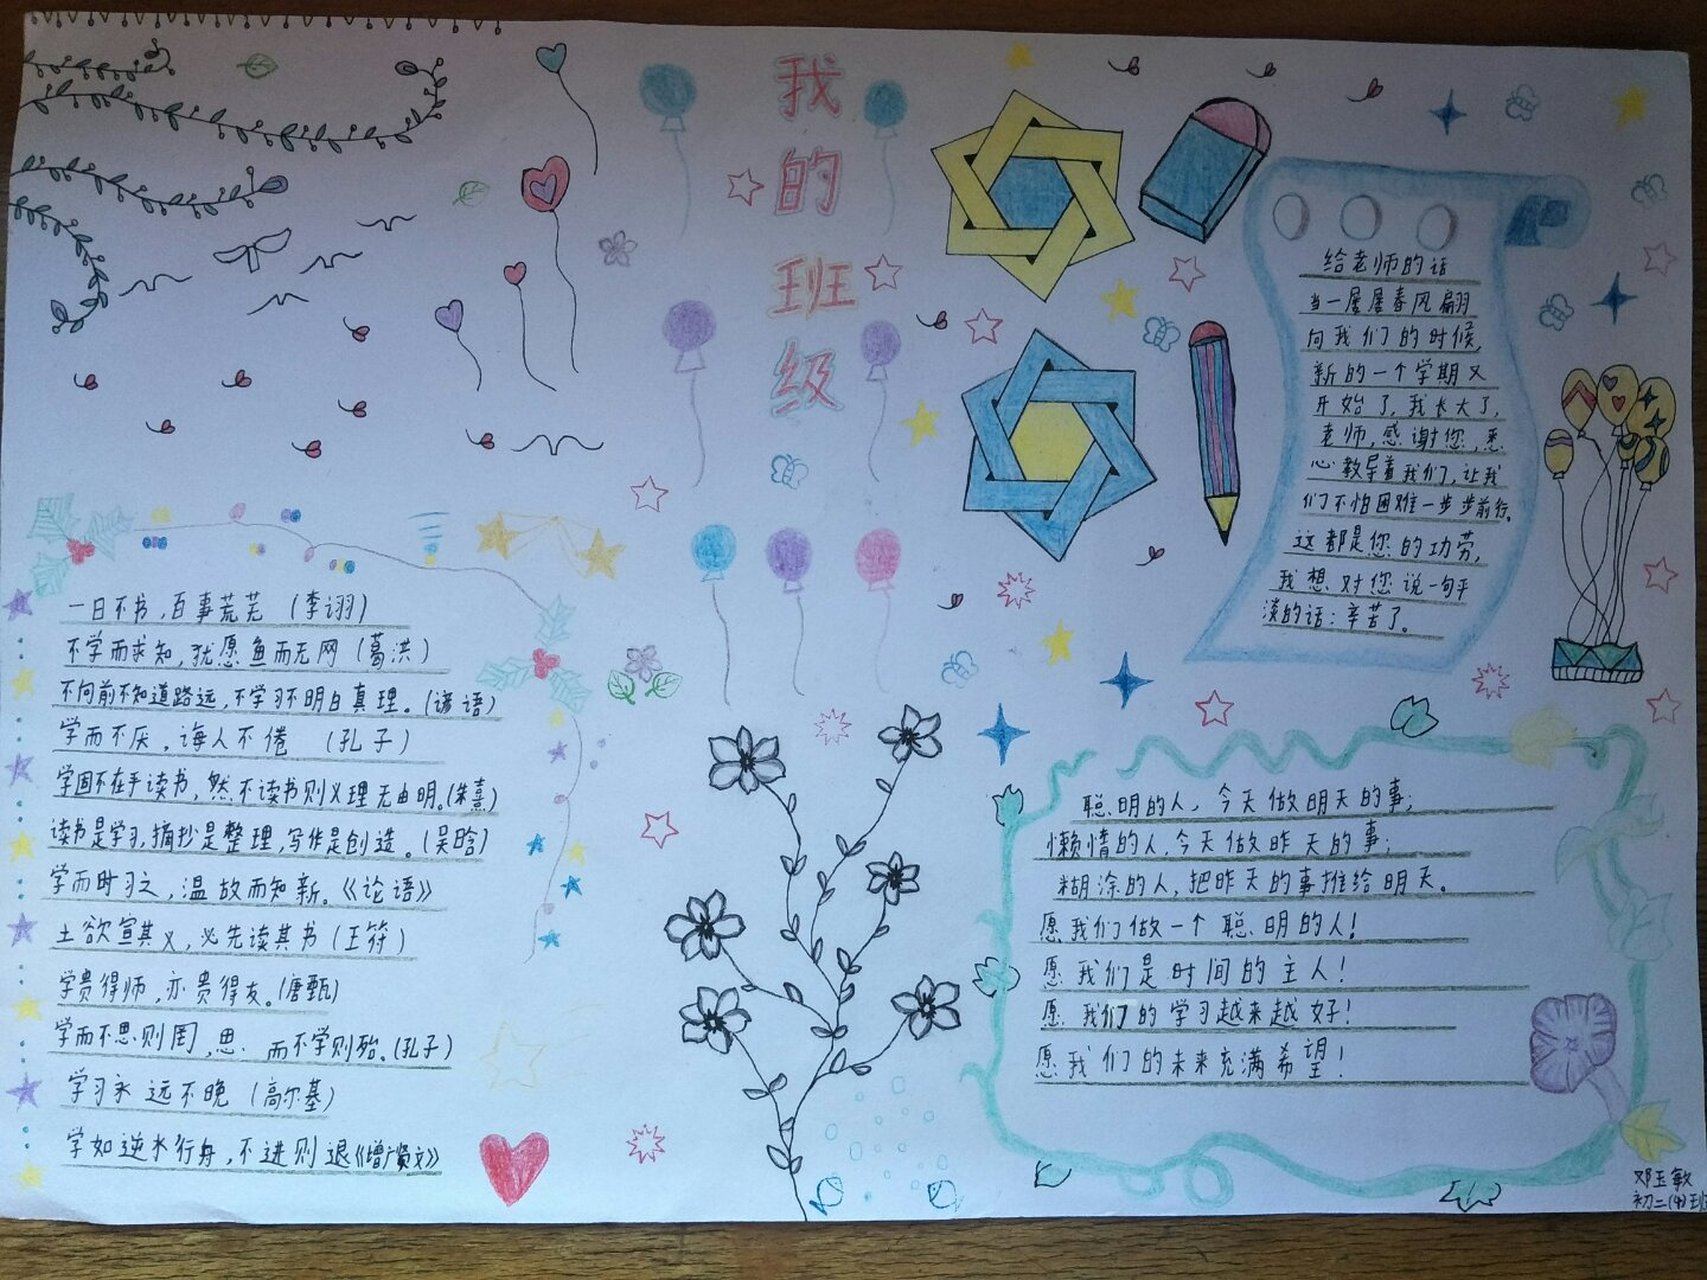 我的班级
一日不书，百事荒芜（李诩）
不学而求知，犹愿鱼而无网（葛洪）
不向前不知道路远，不学习不明白真理。（谚语）
学而不厌，诲人不倦（孔子）
学固不在乎读书，然不读书则义理无由明。（朱熹）
读书是学习，摘抄是整理，写作是创造。（吴晗）
学而时习之，温故而知新。《论语》
土欲宣其义，必先读其书（王符）
学贵得师，亦贵得友。（唐甄）
学而不思则罔，思而不学则殆。（孔子）
学习永远不晚（高尔基）
学如逆水行舟，不进则退《增广贤文》
给老师的话
当一屡屡春风翩
向我们的时候，
新的一个学期又
开始了，我长大了，
老师，感谢您，悉
心教导着我们，让我
们不怕困难一步步前行。
这都是您的功劳，
我想对您说一句平
淡的话：辛苦了。
聪明的人，今天做明天的事；
懒惰的人，今天做昨天的事；
糊涂的人，把昨天的事推给明天。
愿我们做一个聪明的人！
愿我们是时间的主人！
愿我们的学习越来越好！
愿我们的未来充满希望！
邓玉敏
初二(4)班